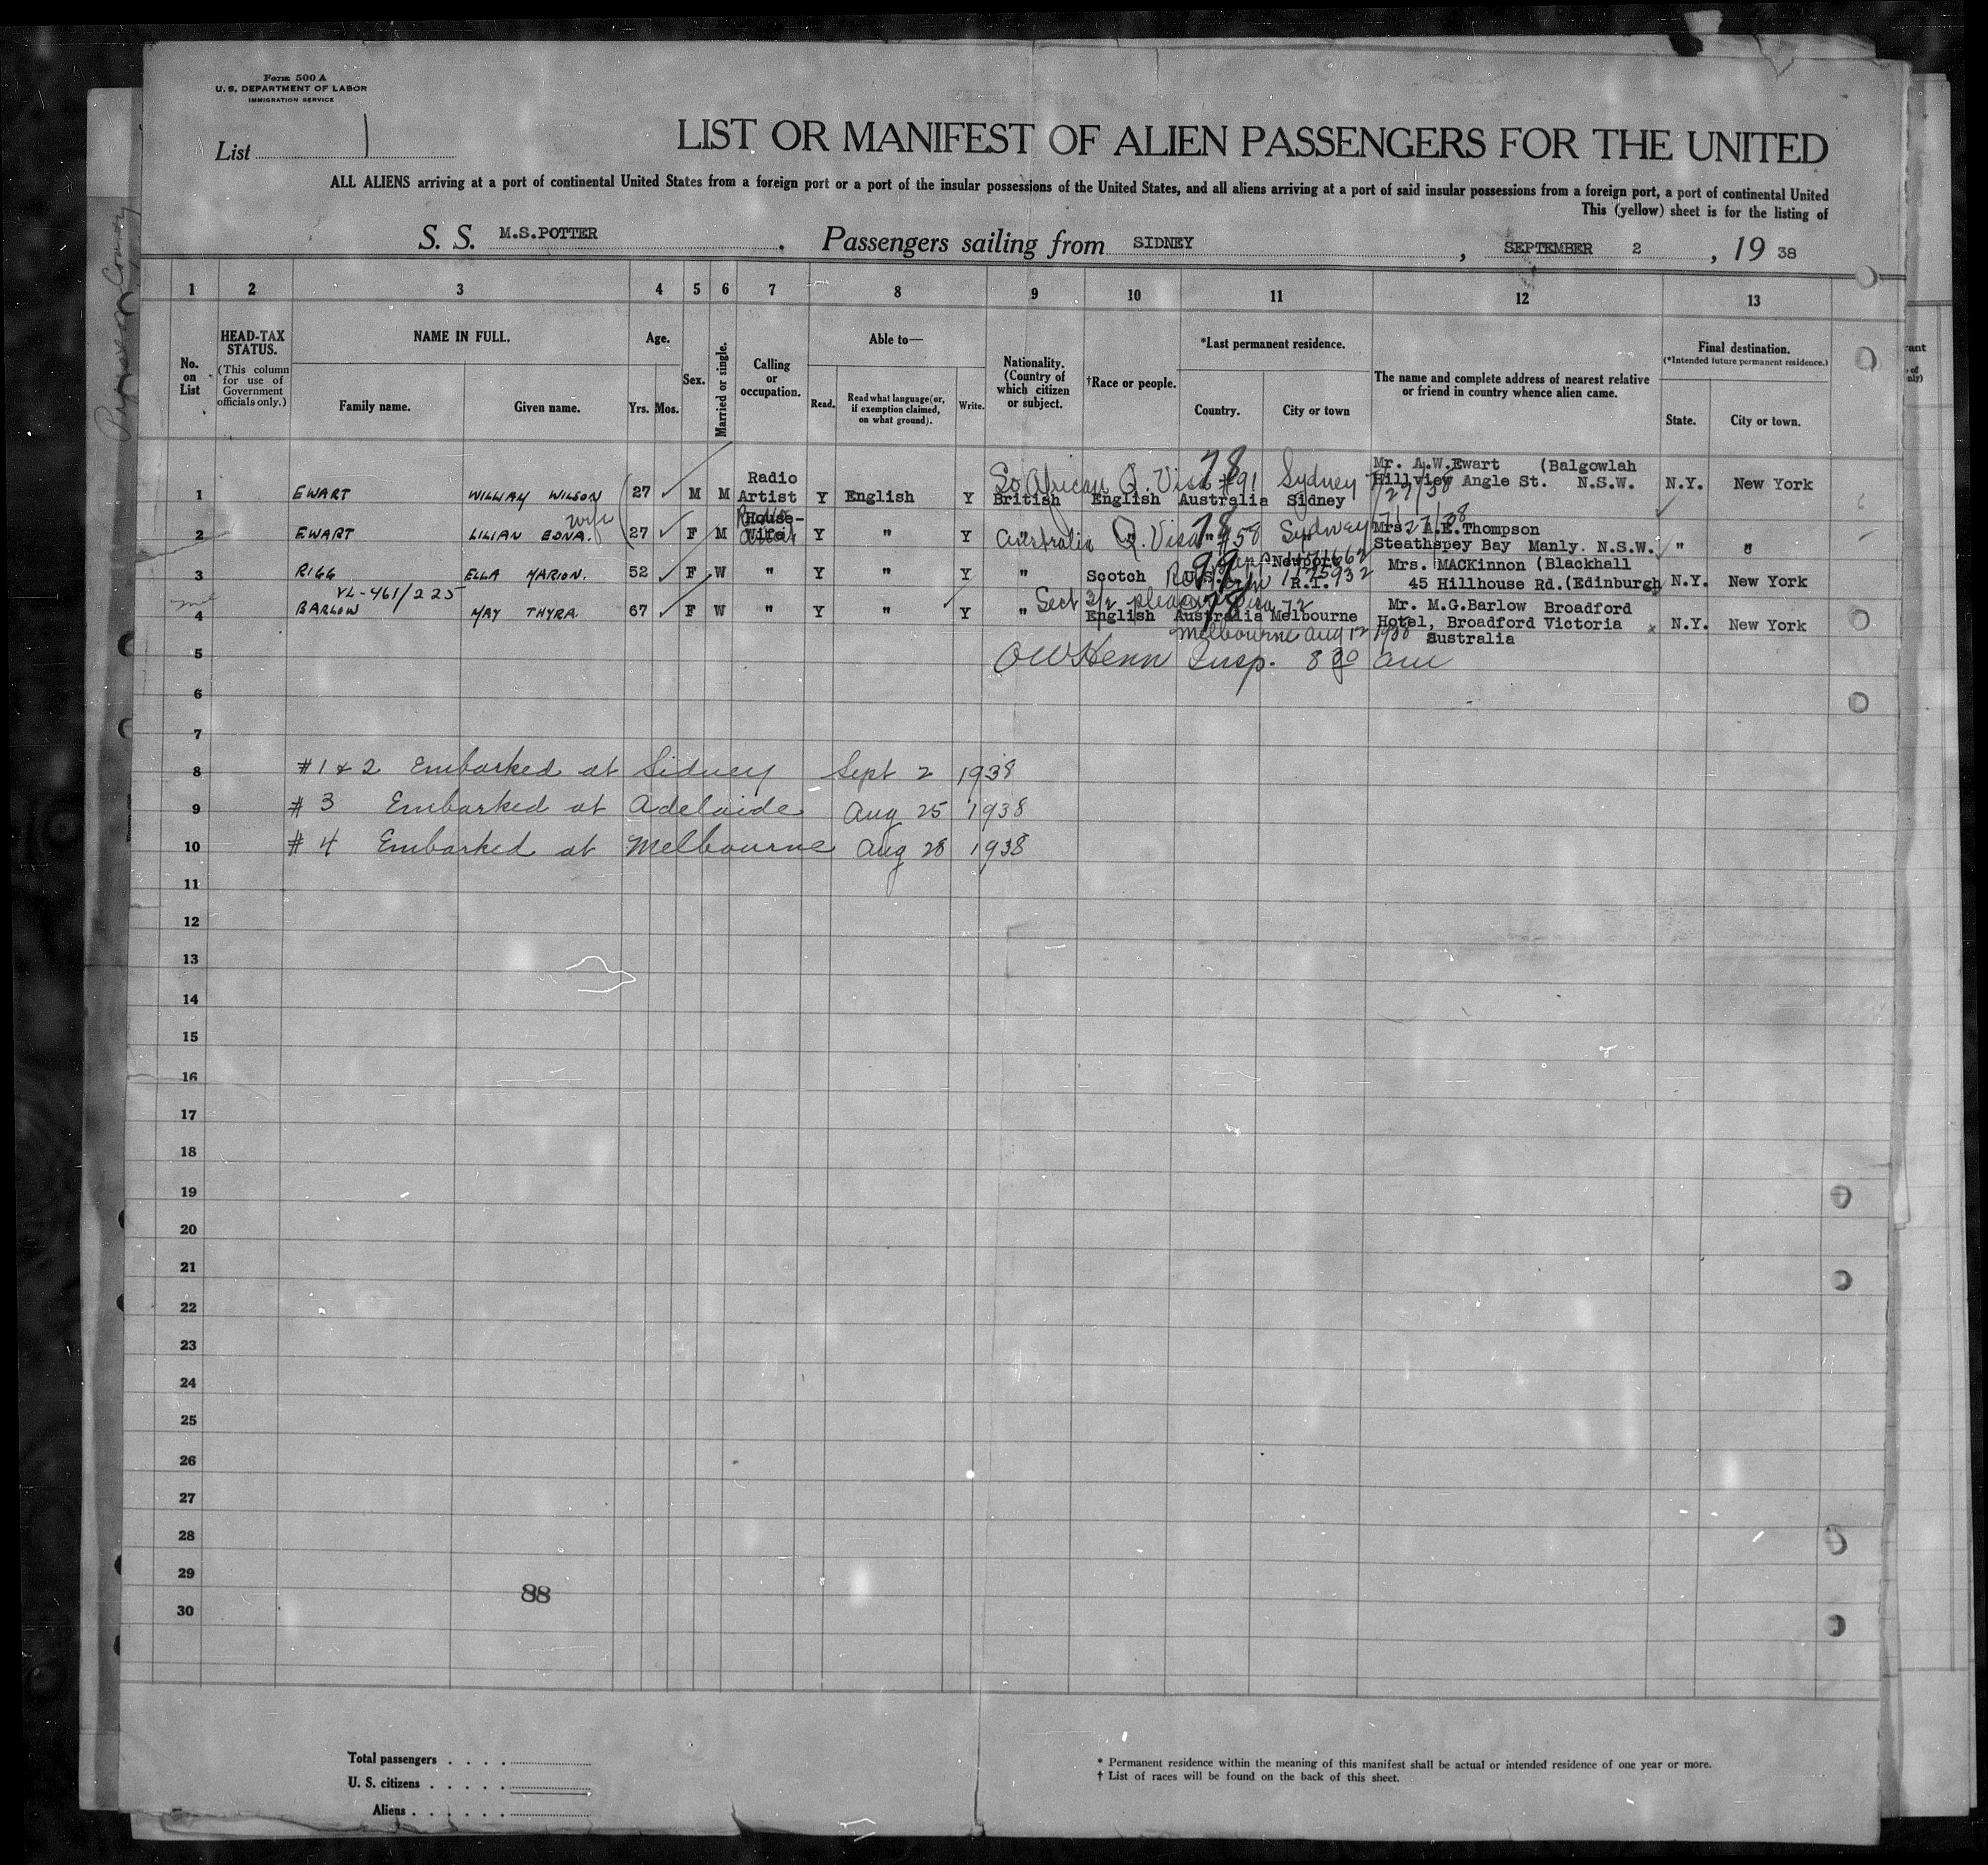 Form 500 A
U. S. DEPARTMENT OF LABOR
IMMIGRATION SERVICE
List 1
LIST OR MANIFEST OF ALIEN PASSENGERS FOR THE UNITED
ALL ALIENS arriving at a port of continental United States from a foreign port or a port of the insular possessions of the United States, and all aliens arriving at a port of said insular possessions from a foreign port, a port of continental United
This (yellow) sheet is for the listing of
S. S. M.S.POTTER . Passengers sailing from SIDNEY , SEPTEMBER 2 , 19 38
1 2 3 4 5 6 7 8 9 10 11 12 13
No. on List
HEAD-TAX STATUS. (This column for use of Government officials only.)
NAME IN FULL.
Family name. Given name.
Age. Yrs. Mos.
Sex.
Married or single.
Calling or occupation.
Able to—
Read. Read what language (or, if exemption claimed, on what ground). Write.
Nationality. (Country of which citizen or subject.
†Race or people.
*Last permanent residence.
Country. City or town
The name and complete address of nearest relative or friend in country whence alien came.
Final destination. (*Intended future permanent residence.)
State. City or town.
So African Q. Visa #91 Sydney 7/27/38
78
1 EWART WILLIAM WILSON 27 M M Radio Artist Y English Y British English Australia Sidney Mr. A.W.Ewart (Balgowlah Hillview Angle St. N.S.W. N.Y. New York
wife
2 EWART LILIAN EDNA. 27 F M House-Wife Y " Y Australia Q. Visa #58 Sydney 7/27/38 Mrs. A.E.Thompson Steathspey Bay Manly. N.S.W. " "
78
3 RIGG ELLA MARION. 52 F W " Y " Y " Scotch U.S. Newport R.I. Mrs. MACKinnon (Blackhall 45 Hillhouse Rd.(Edinburgh N.Y. New York
99
VL-461/225
4 BARLOW MAY THYRA. 67 F W " Y " Y " English Australia Melbourne Mr. M.G.Barlow Broadford Hotel, Broadford Victoria Sustralia N.Y. New York
Sect 3/2 pleasure Visa 72
78
Melbourne Aug 12
5 Insp. 8 30 am
6
7
8 #1 & 2 Embarked at Sidney Sept 2 1938
9 # 3 Embarked at Adelaide Aug 25 1938
10 # 4 Embarked at Melbourne Aug 28 1938
11
12
13
14
15
16
17
18
19
20
21
22
23
24
25
26
27
28
29
30
88
Total passengers
U. S. citizens
Aliens
* Permanent residence within the meaning of this manifest shall be actual or intended residence of one year or more.
† List of races will be found on the back of this sheet.